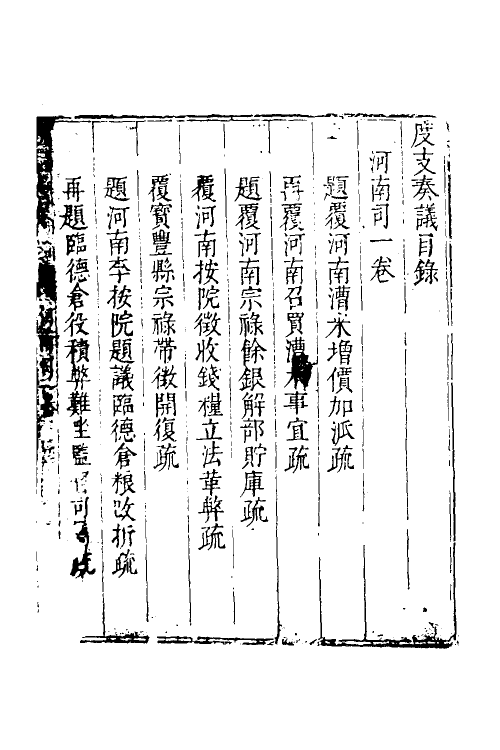 度支奏議目錄
河南司一卷
題覆河南漕米增價加派疏
再覆河南召買漕米事宜疏
題覆河南宗祿餘銀解部貯庫疏
覆河南按院徵收錢糧立法革弊疏
覆寶豐縣宗祿帶徵開復疏
題河南李按院題議臨德倉粮改折疏
再題臨德倉役積弊難坐監官司疏